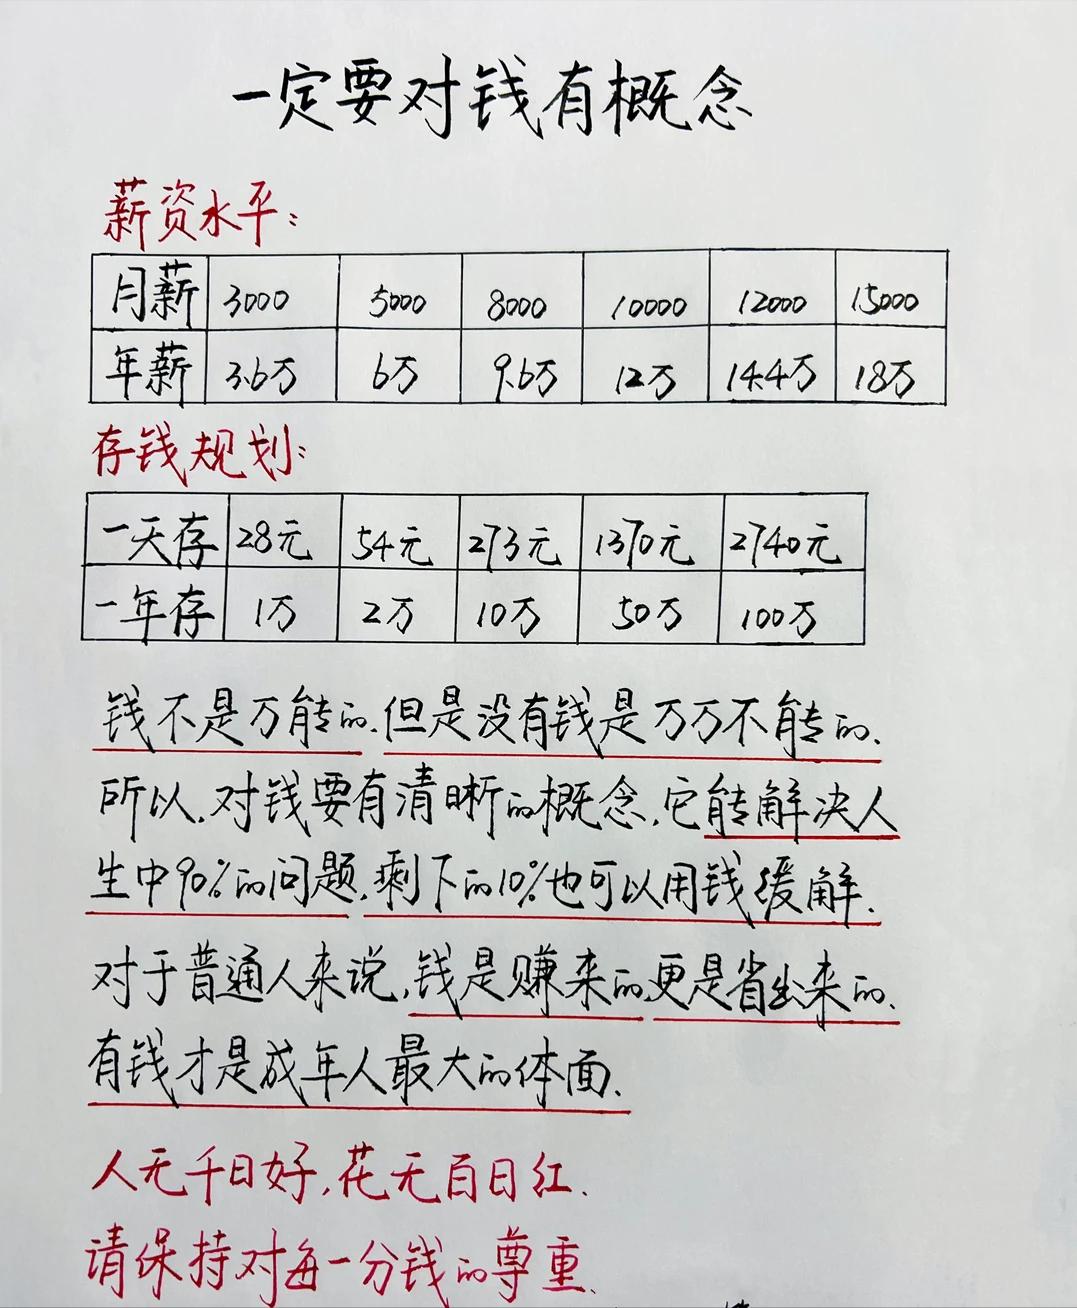 一定要对钱有概念
薪资水平:
月薪 3000 5000 8000 10000 12000 15000
年薪 3.6万 6万 9.6万 12万 14.4万 18万
存钱规划:
一天存 28元 54元 273元 1370元 2740元
一年存 1万 2万 10万 50万 100万
钱不是万能的.但是没有钱是万万不能的.
所以.对钱要有清晰的概念.它能解决人
生中90%的问题.剩下的10%也可以用钱缓解.
对于普通人来说,钱是赚来的,更是省出来的.
有钱才是成年人最大的体面.
人无千日好,花无百日红.
请保持对每一分钱的尊重.